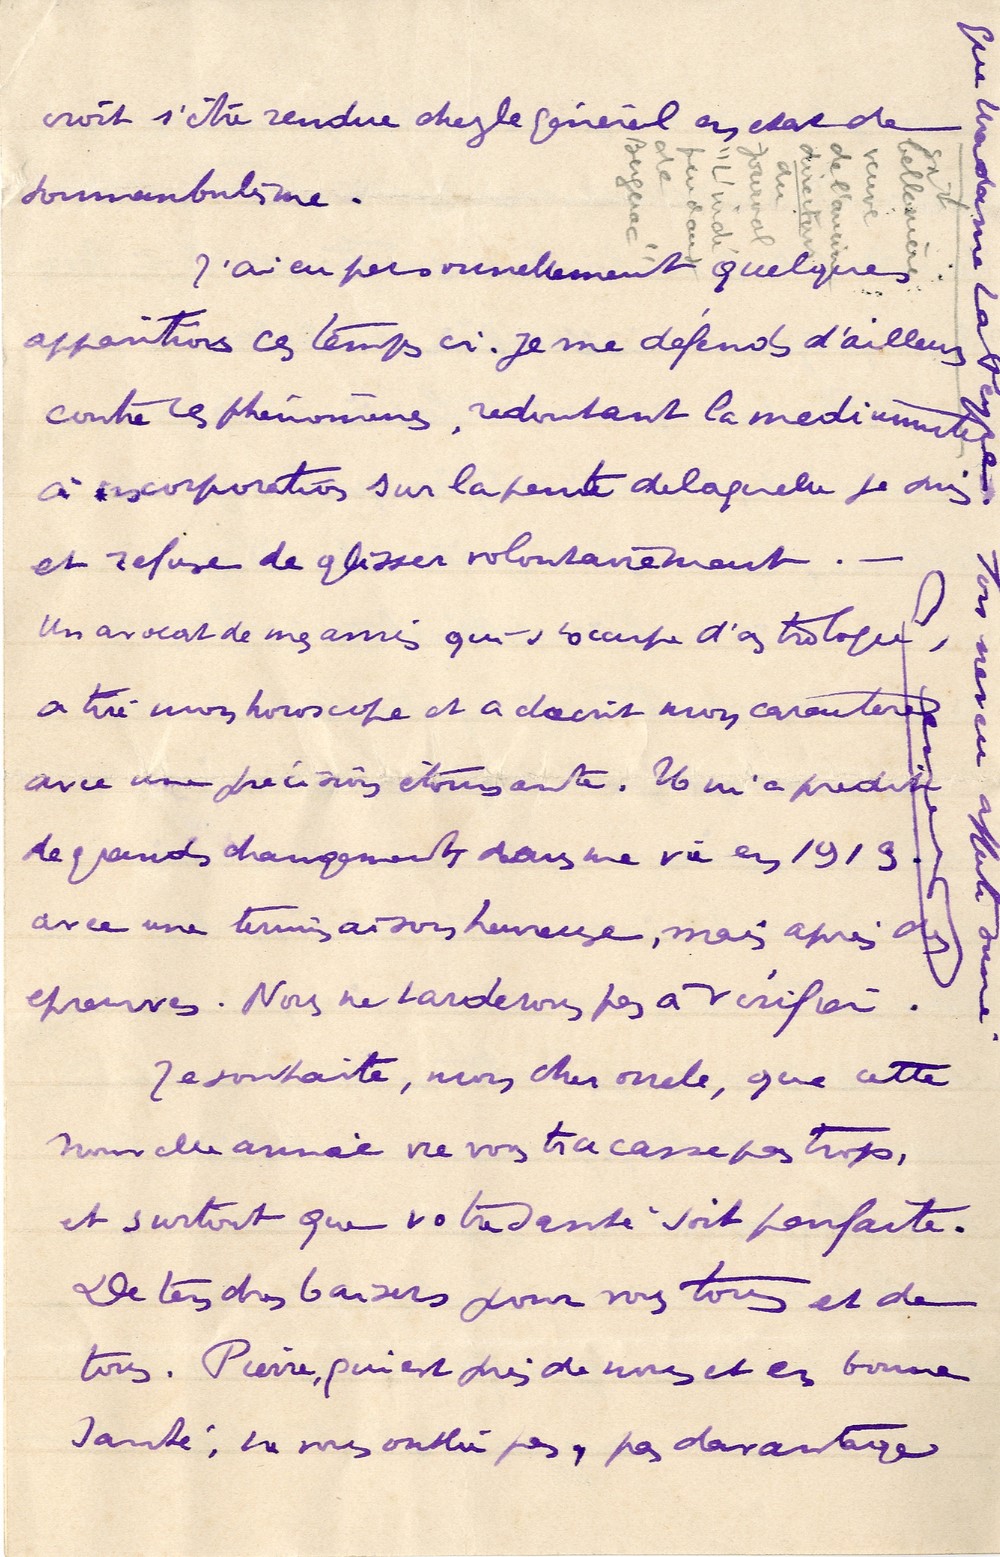 croit s'être rendue chez le général en état de
somnambulisme.
J'ai eu personnellement quelques
apparitions ces temps ci. Je me défends d'ailleurs
contre ces phénomènes, redoutant la mediumnité
à incorporation sur la pente de laquelle je suis
et refuse de glisser volontairement. —
Un avocat de mes amis qui s'occupe d'astrologie,
a tiré mon horoscope et a décrit mon caractère
avec une précision étonnante. Il m'a prédit
de grands changements dans ma vie en 1919.
avec une terminaison heureuse, mais après des
epreuves. Nous ne tarderons pas à vérifier.
Je souhaite, mon cher oncle, que cette
nouvelle année ne vous tracasse pas trop,
et surtout que votre santé soit parfaite.
De tendres baisers pour vous tous et de
tous. Pierre, qui est près de nous et en bonne
santé, ne vous oublie pas, pas davantage
que Madame
Ton neveu affectionné
veuve
de l'ancien
directeur
du
journal
"L'Indé
pendant
de
Bergerac"